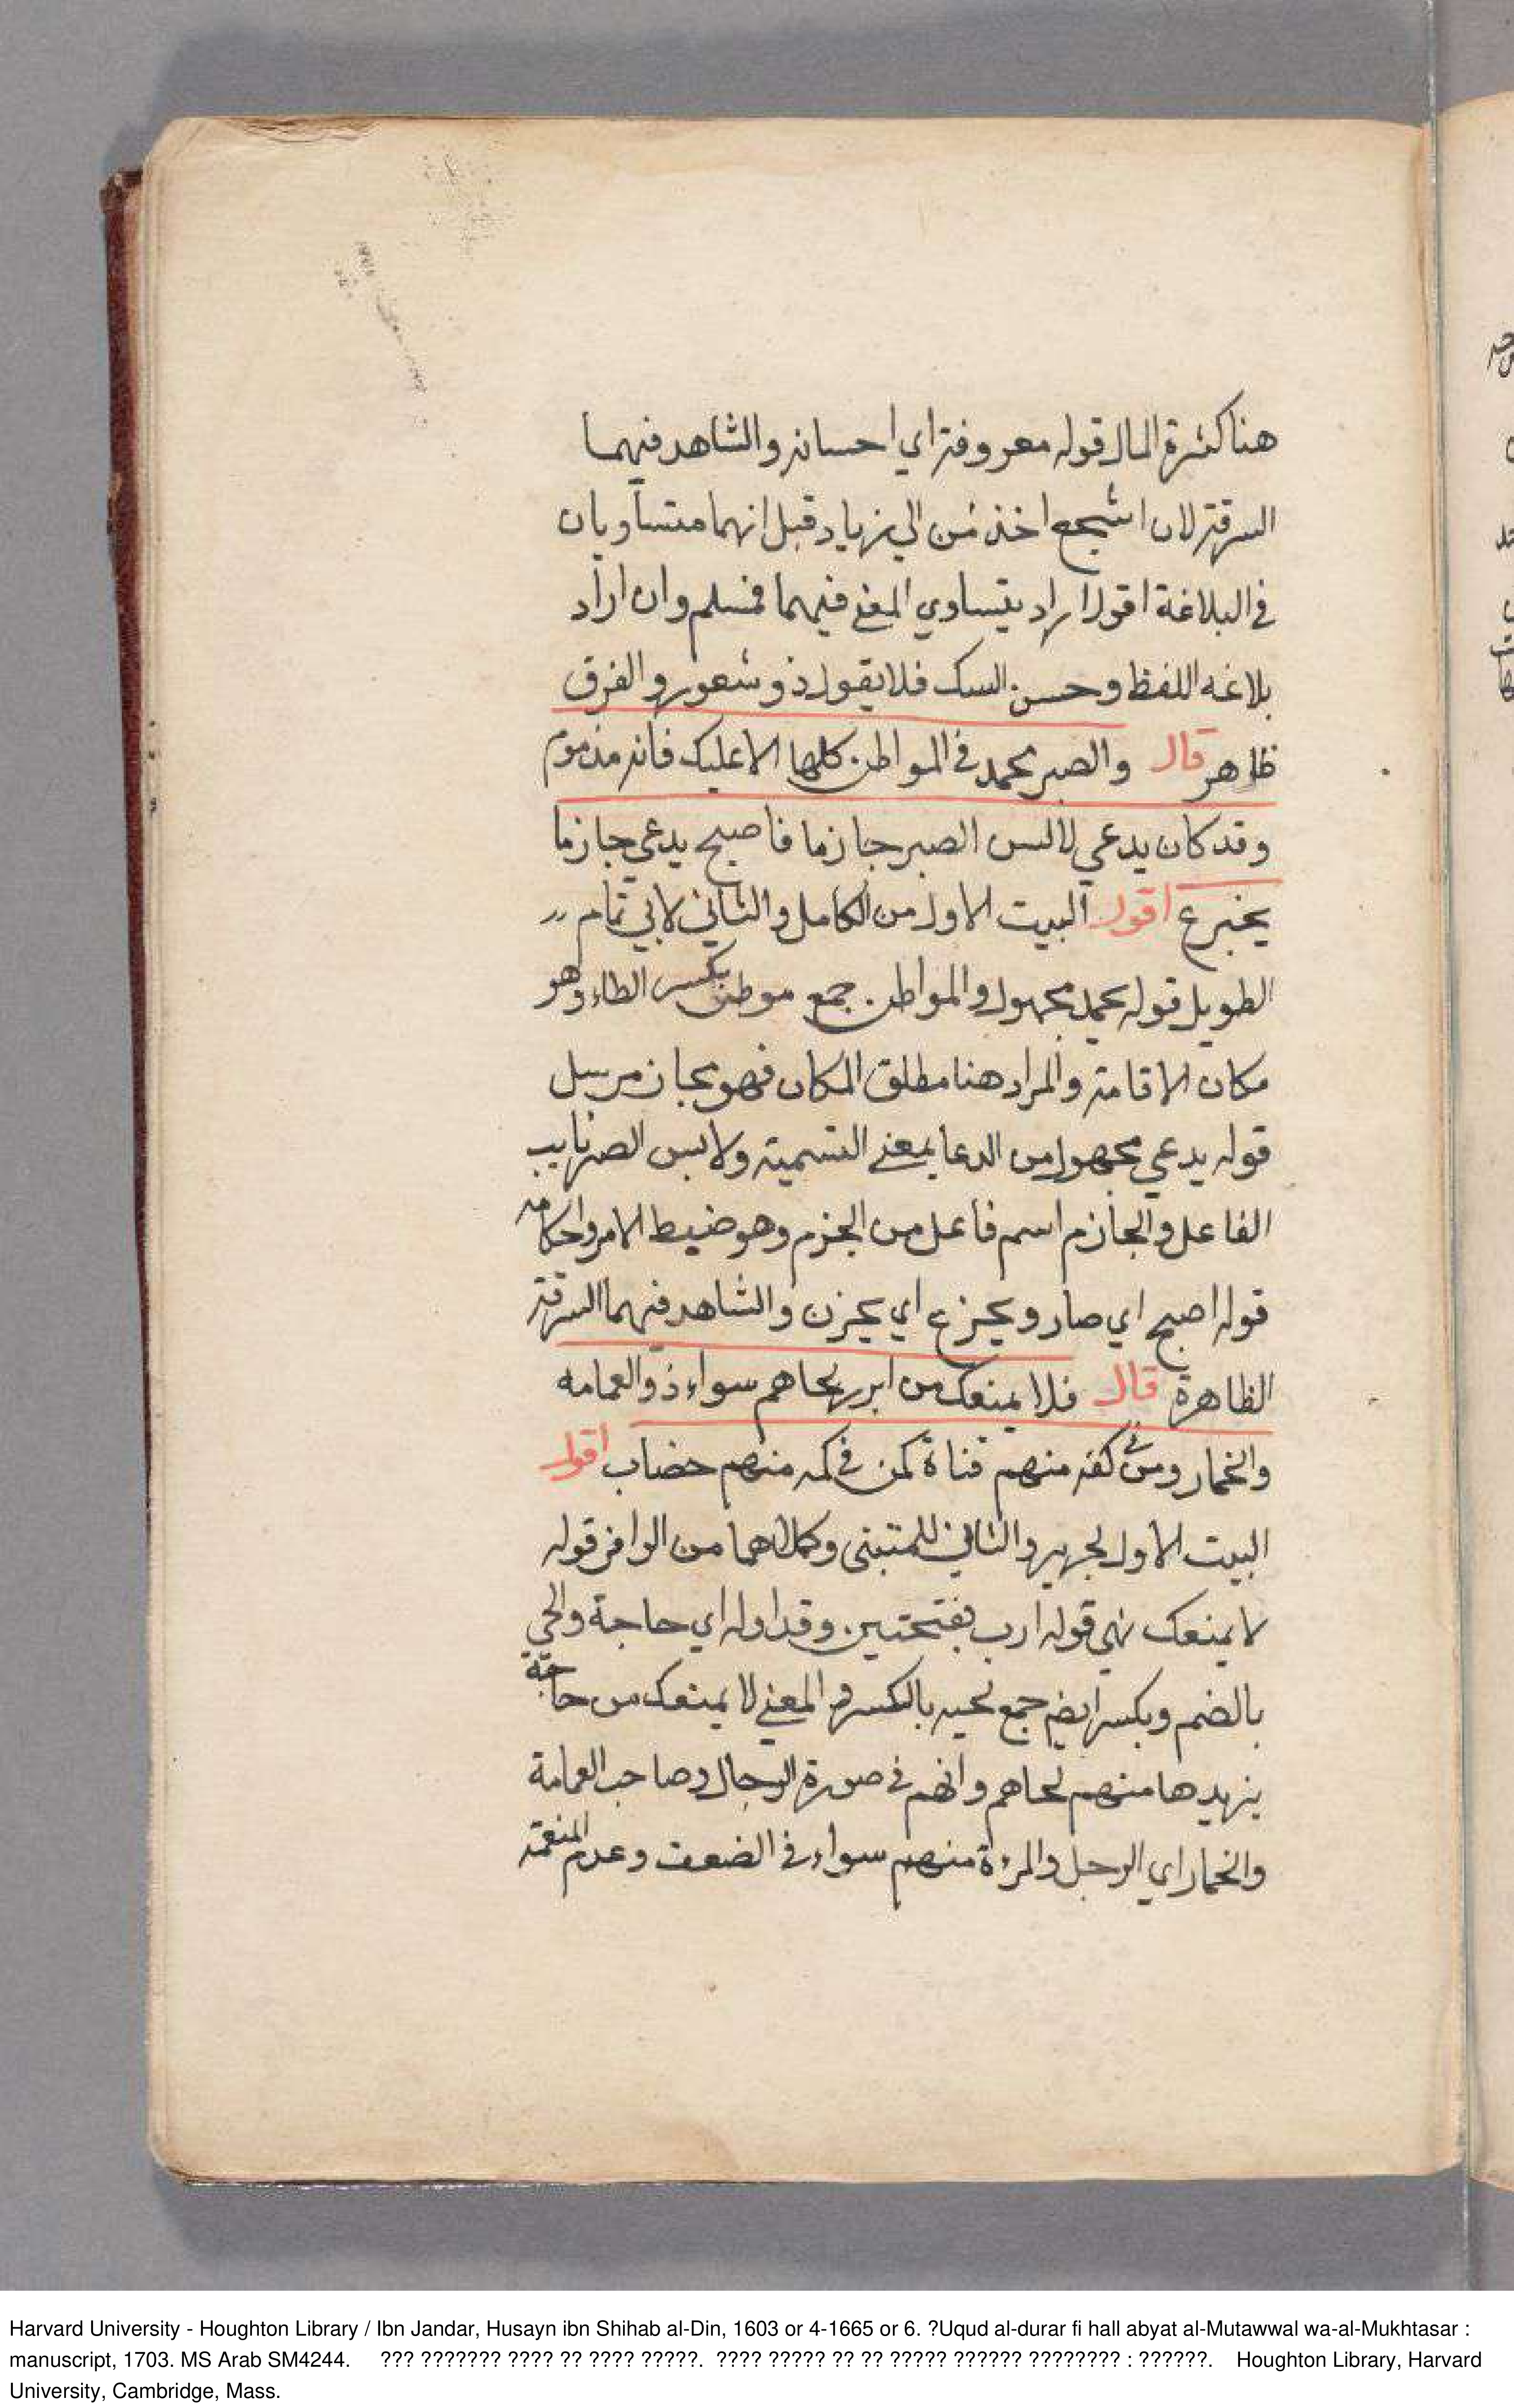 هنا كثرة المال قوله معروفة اي احسانه والشاهد فيهما
السرقة لان اشجع اخذ من ابي زياد قيل انهما متساويان
في البلاغة اقول اراد بتساوي المعنى فيهما فمسلم وان اراد
بلاغه اللفظ وحسن السبك فلا يقول ذو شعور والفرق
ظاهر قال والصبر يحمد في المواطن كلها الا عليك فانه مذموم
وقد كان يدعي لابس الصبر حازما فاصبح يدعي حازما
يجزع اقول البيت الاول من الكامل والثاني لابي تمام
الطويل قوله يحمد مجهول والمواطن جمع موطن بكسر الطاء وهو
مكان الاقامة والمراد هنا مطلق المكان فهو مجاز مرسل
قوله يدعي مجهول من الدعا بمعنى التسمية ولابس الصبر نايب
الفاعل والجازم اسم فاعل من الجزم وهو ضبط الامر واحكامه
قوله اصبح اي صار ويجزع اي يحزن والشاهد فيهما السرقة
الظاهرة قال فلا يمنعك من ارب لحاهم سواء ذو العمامه
والخمار ومن في كفه منهم قناة كمن في كفه منهم خضاب اقول
البيت الاول لجرير والثاني للمتنبى وكلاهما من الوافر قوله
لا يمنعك نهي قوله ارب بفتحتين وقد اوله اي حاجة والحي
بالضم وبكسر ايضا جمع لحيه بالكسر والمعنى لا يمنعك من حاجة
يزيدها منهم لحاهم وانهم في صورة الرجال وصاحب العمامة
والخمار اي الرجل والمرءة منهم سواء في الضعف وعدم المنفعة
Harvard University - Houghton Library / Ibn Jandar, Husayn ibn Shihab al-Din, 1603 or 4-1665 or 6. ?Uqud al-durar fi hall abyat al-Mutawwal wa-al-Mukhtasar :
manuscript, 1703. MS Arab SM4244. ??? ??????? ???? ?? ???? ?????. ???? ????? ?? ?? ????? ?????? ???????? : ??????. Houghton Library, Harvard
University, Cambridge, Mass.